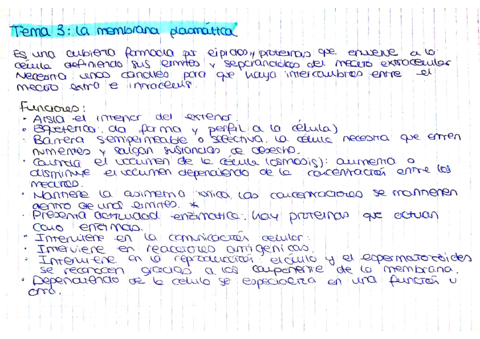 Tema 3: La membrana plasmática
Es una cubierta formada por lípidos y proteínas que envuelve a la
célula definiendo sus límites y separándolos del medio extracelular
Necesita unos canales para que haya intercambios entre el
medio extra e intracelular.
Funciones:
· Aísla el interior del exterior.
· Esquelética: da forma y perfil a la célula)
· Barrera semipermeable o selectiva, la célula necesita que entren
nutrientes y salgan sustancias de desecho.
· Controla el volumen de la célula (osmosis): aumenta o
disminuye el volumen dependiendo de la concentración entre los
medios.
· Mantiene la asimetría iónica, las concentraciones se mantienen
dentro de unos límites. *
· Presenta actividad enzimática: hay proteínas que actúan
como enzimas.
· Interviene en la comunicación celular.
· Interviene en reacciones antigénicas.
· Interviene en la reproducción el óvulo y el espermatozoides
se reconocen gracias a los componente de la membrana.
· Dependiendo de la célula se especializa en una función u
otra.